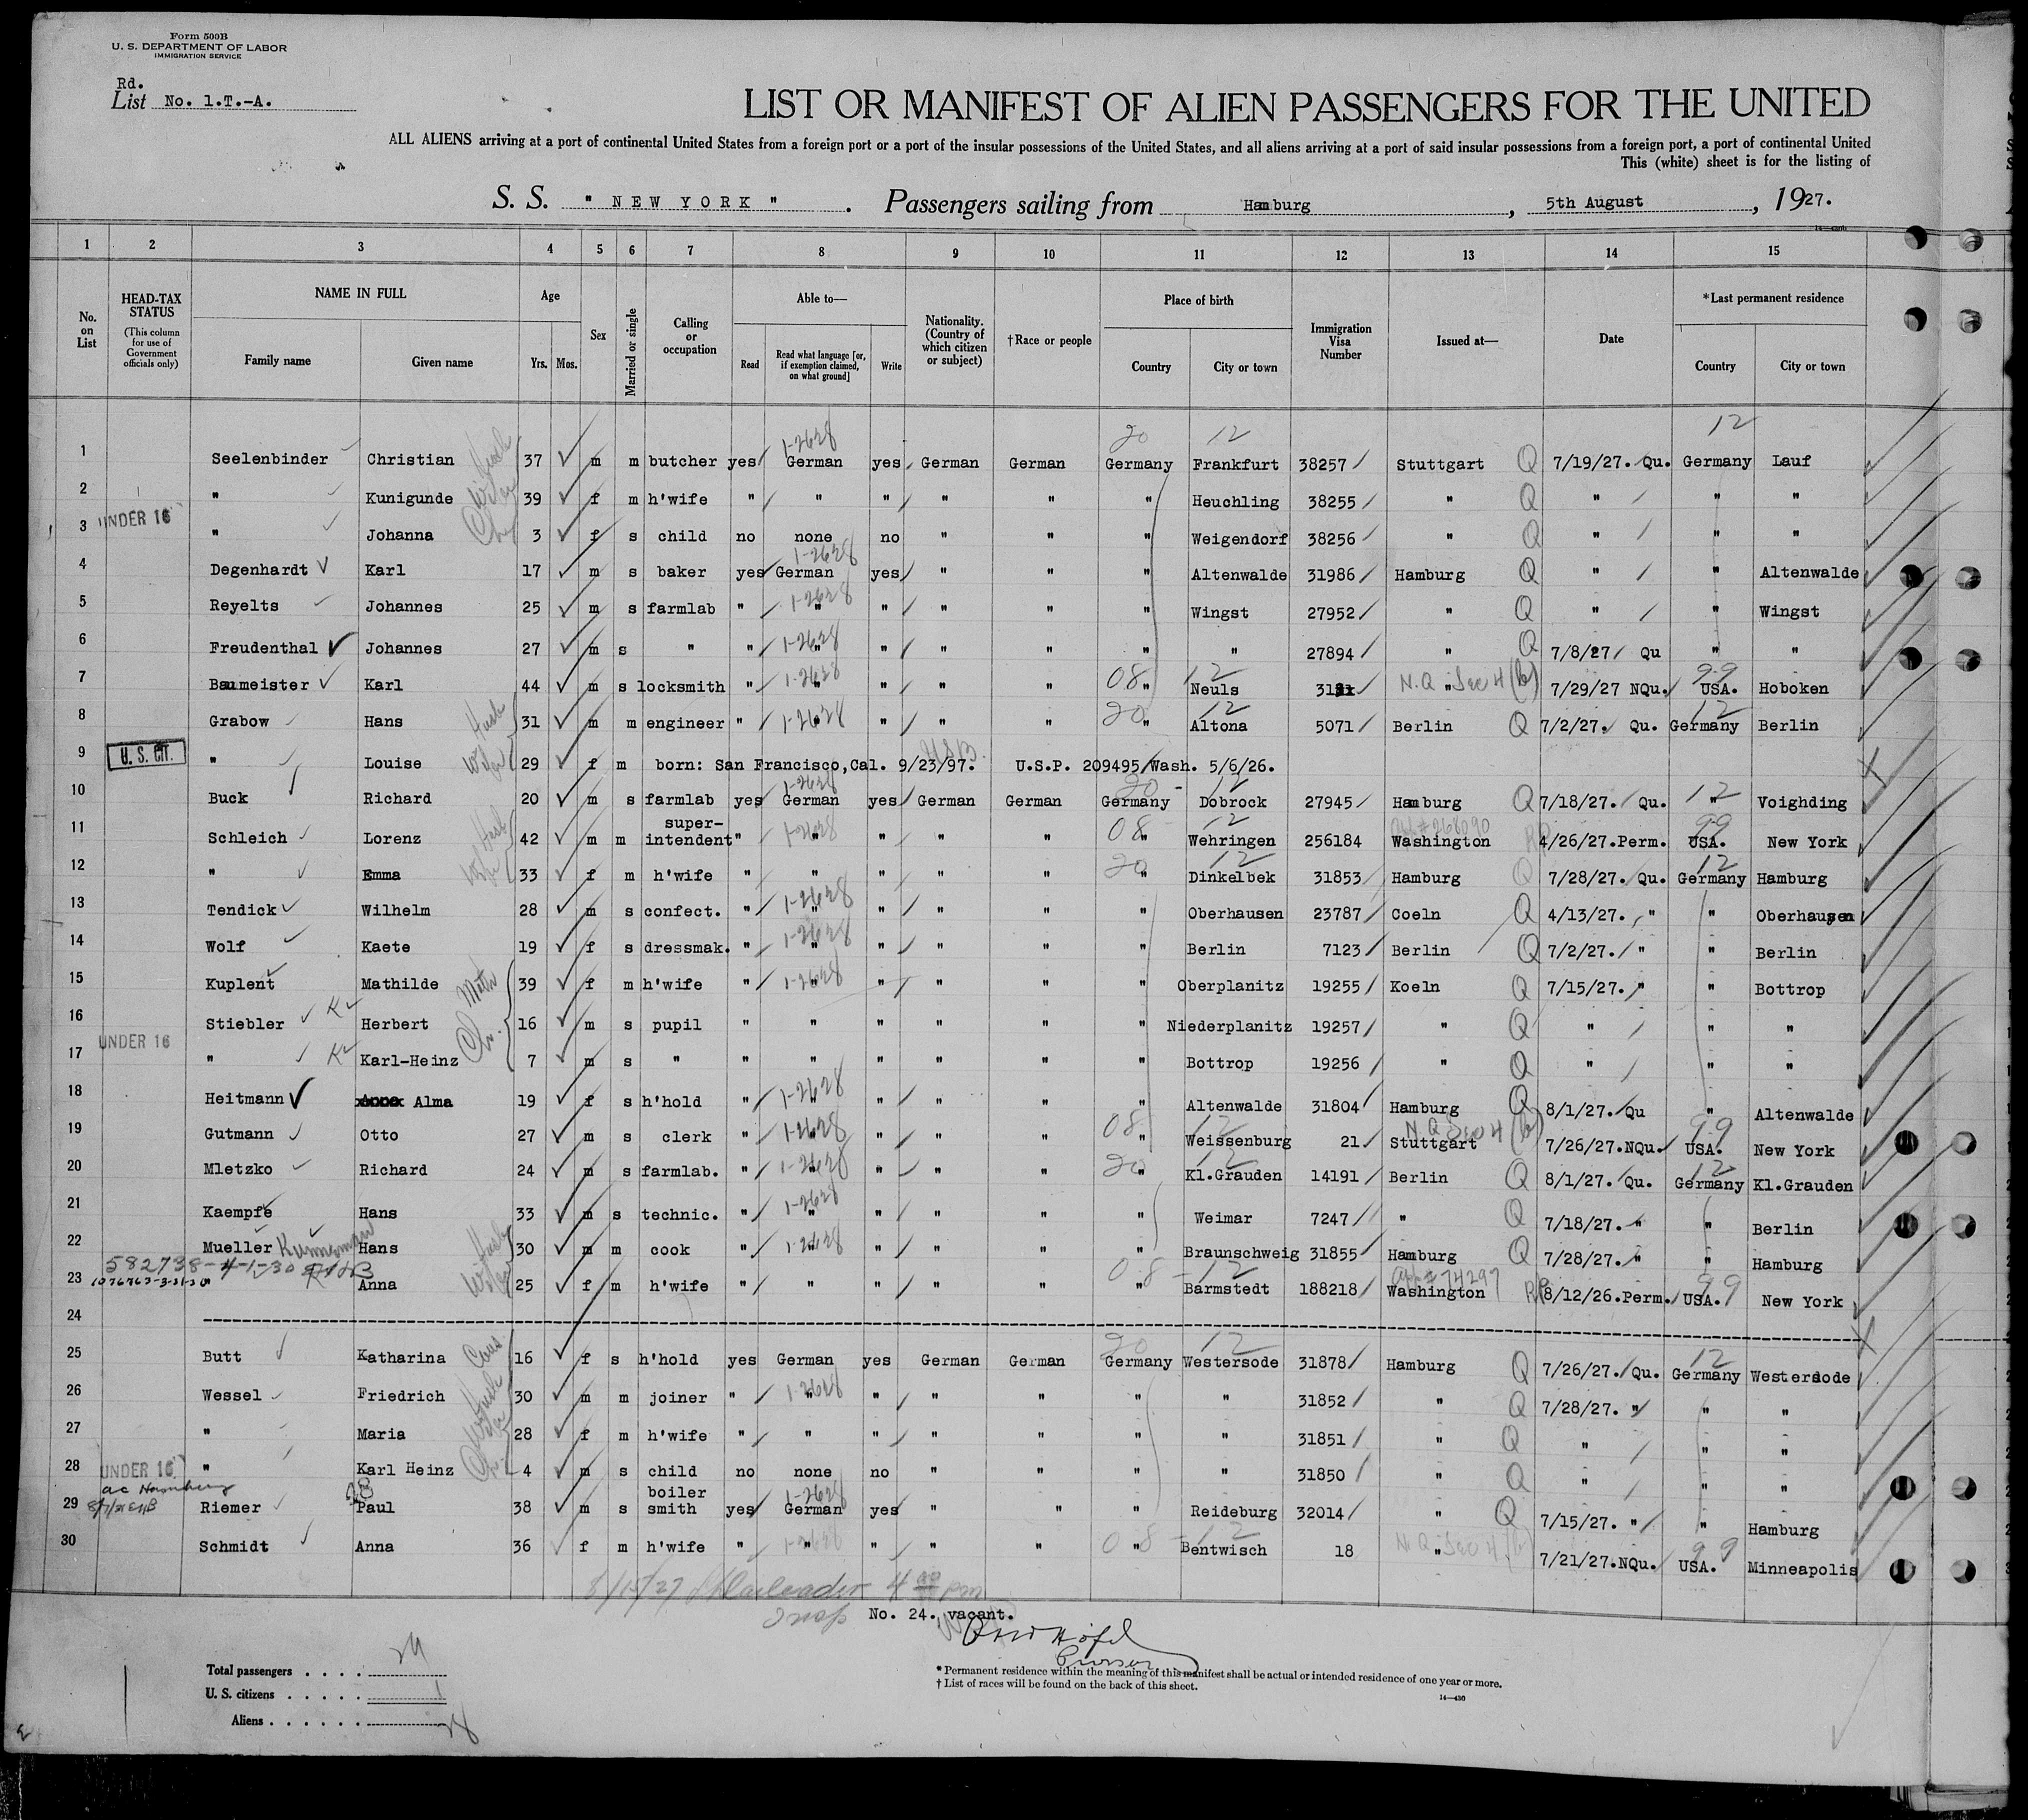 Form 500B
U. S. DEPARTMENT OF LABOR
IMMIGRATION SERVICE
Rd.
List No. 1.T.-A.
LIST OR MANIFEST OF ALIEN PASSENGERS FOR THE UNITED
ALL ALIENS arriving at a port of continental United States from a foreign port or a port of the insular possessions of the United States, and all aliens arriving at a port of said insular possessions from a foreign port, a port of continental United
This (white) sheet is for the listing of
S. S. " NEW YORK ". Passengers sailing from Hamburg, 5th August, 1927.
1 2 3 4 5 6 7 8 9 10 11 12 13 14 15
No. on List
HEAD-TAX STATUS (This column for use of Government officials only)
NAME IN FULL Family name Given name
Age Yrs. Mos.
Sex
Married or single
Calling or occupation
Able to— Read Read what language [or, if exemption claimed, on what ground] Write
Nationality. (Country of which citizen or subject)
† Race or people
Place of birth Country City or town
Immigration Visa Number
Issued at—
Date
* Last permanent residence Country City or town
20 12 12
1 Seelenbinder Christian 37 m m butcher yes 1-2628 German yes German German Germany Frankfurt 38257 Stuttgart Q 7/19/27. Qu. Germany Lauf
2 " Kunigunde 39 f m h'wife " " " " " " Heuchling 38255 " Q " " "
3 UNDER 16 " Johanna 3 f s child no none no " " " Weigendorf 38256 " Q " " "
4 Degenhardt Karl 17 m s baker yes 1-2628 German yes " " " Altenwalde 31986 Hamburg Q " " Altenwalde
5 Reyelts Johannes 25 m s farmlab " 1-2628 " " " " " Wingst 27952 " Q " " Wingst
6 Freudenthal Johannes 27 m s " " 1-2628 " " " " " " 27894 " Q 7/8/27 Qu " "
7 Baumeister Karl 44 m s locksmith " 1-2628 " " " " 08 " 12 Neuls N.Q Sec 4 (b) " 7/29/27 NQu. 99 USA. Hoboken
8 Grabow Hans 31 m m engineer " 1-2628 " " " " 20 " 12 Altona 5071 Berlin Q 7/2/27. Qu. 12 Germany Berlin
9 U. S. CIT. " Louise 29 f m born: San Francisco,Cal. 9/23/97. U.S.P. 209495/Wash. 5/6/26.
10 Buck Richard 20 m s farmlab yes 1-2628 German yes German German 20 Germany 12 Dobrock 27945 Hamburg Q 7/18/27. Qu. 12 " Voighding
11 Schleich Lorenz 42 m m super-intendent " 1-2628 " " " " 08 " 12 Wehringen 256184 Washington 4/26/27.Perm. 99 USA. New York
12 " Emma 33 f m h'wife " " " " " 20 " 12 Dinkelbek 31853 Hamburg Q 7/28/27. Qu. 12 Germany Hamburg
13 Tendick Wilhelm 28 m s confect. " 1-2628 " " " " " Oberhausen 23787 Coeln Q 4/13/27. " " Oberhausen
14 Wolf Kaete 19 f s dressmak. " 1-2628 " " " " " Berlin 7123 Berlin Q 7/2/27. " " Berlin
15 Kuplent Mathilde 39 f m h'wife " 1-2628 " " " " " Oberplanitz 19255 Koeln Q 7/15/27. " " Bottrop
16 Stiebler Herbert 16 m s pupil " " " " " " Niederplanitz 19257 " Q " " "
17 UNDER 16 " Karl-Heinz 7 m s " " " " " " " Bottrop 19256 " Q " " "
18 Heitmann Alma 19 f s h'hold " 1-2628 " " " " Altenwalde 31804 Hamburg Q 8/1/27. Qu " Altenwalde
19 Gutmann Otto 27 m s clerk " 1-2628 " " " " 08 " 12 Weissenburg 21 N.Q Sec 4 (b) Stuttgart 7/26/27.NQu. 99 USA. New York
20 Mletzko Richard 24 m s farmlab. " 1-2628 " " " " 20 " 12 Kl.Grauden 14191 Berlin Q 8/1/27. Qu. 12 Germany Kl.Grauden
21 Kaempfe Hans 33 m s technic. " 1-2628 " " " " " Weimar 7247 " Q 7/18/27. " " Berlin
22 Mueller Hans 30 m m cook " 1-2628 " " " " " Braunschweig 31855 Hamburg Q 7/28/27. " " Hamburg
582738-4-1-30
23 Anna 25 f m h'wife " " " " " 08 " 12 Barmstedt 188218 Washington 8/12/26.Perm. 99 USA. New York
24
25 Butt Katharina 16 f s h'hold yes German yes German German 20 Germany 12 Westersode 31878 Hamburg Q 7/26/27. Qu. 12 Germany Westersode
26 Wessel Friedrich 30 m m joiner " 1-2628 " " " " " " 31852 " Q 7/28/27. " " "
27 " Maria 28 f m h'wife " " " " " " " 31851 " Q " " "
28 UNDER 16 " Karl Heinz 4 m s child no none no " " " " 31850 " Q " " "
29 Riemer Paul 38 m s boiler smith yes 1-2628 German yes " " " Reideburg 32014 " Q 7/15/27. " " Hamburg
30 Schmidt Anna 36 f m h'wife " 1-2628 " " " " 08 " 12 Bentwisch 18 N.Q Sec 4 (b) " 7/21/27.NQu. 99 USA. Minneapolis
8/15/27 4 00 pm
Insp No. 24. vacant.
Purser
Total passengers . . . . 29
U. S. citizens . . . . . 1
Aliens . . . . . . 28
* Permanent residence within the meaning of this manifest shall be actual or intended residence of one year or more.
† List of races will be found on the back of this sheet.
14—430